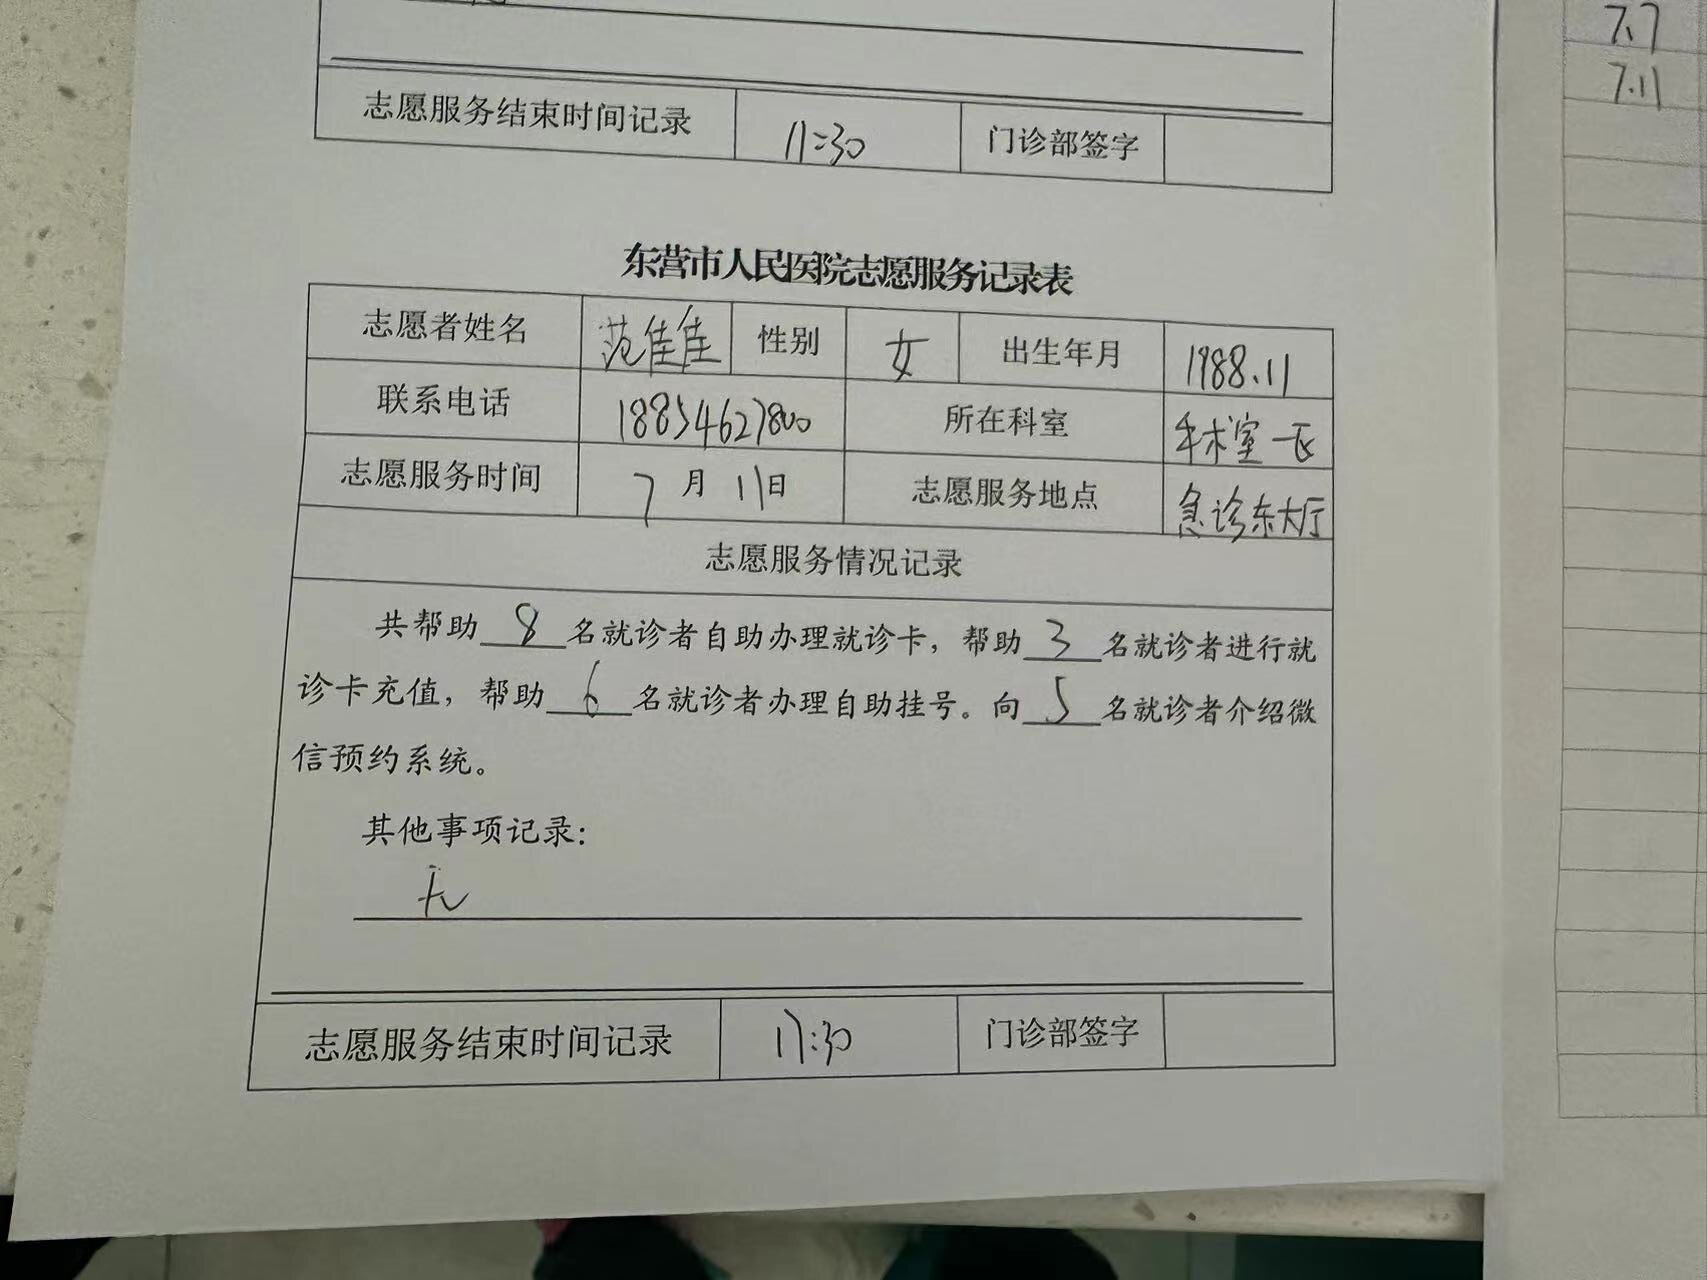 志愿服务结束时间记录 11:30 门诊部签字
东营市人民医院志愿服务记录表
志愿者姓名 范佳佳 性别 女 出生年月 1988.11
联系电话 18854627800 所在科室 手术室一区
志愿服务时间 7月11日 志愿服务地点 急诊东大厅
志愿服务情况记录
共帮助8名就诊者自助办理就诊卡，帮助3名就诊者进行就
诊卡充值，帮助6名就诊者办理自助挂号。向5名就诊者介绍微
信预约系统。
其他事项记录：
无
志愿服务结束时间记录 17:30 门诊部签字
7.7
7.11